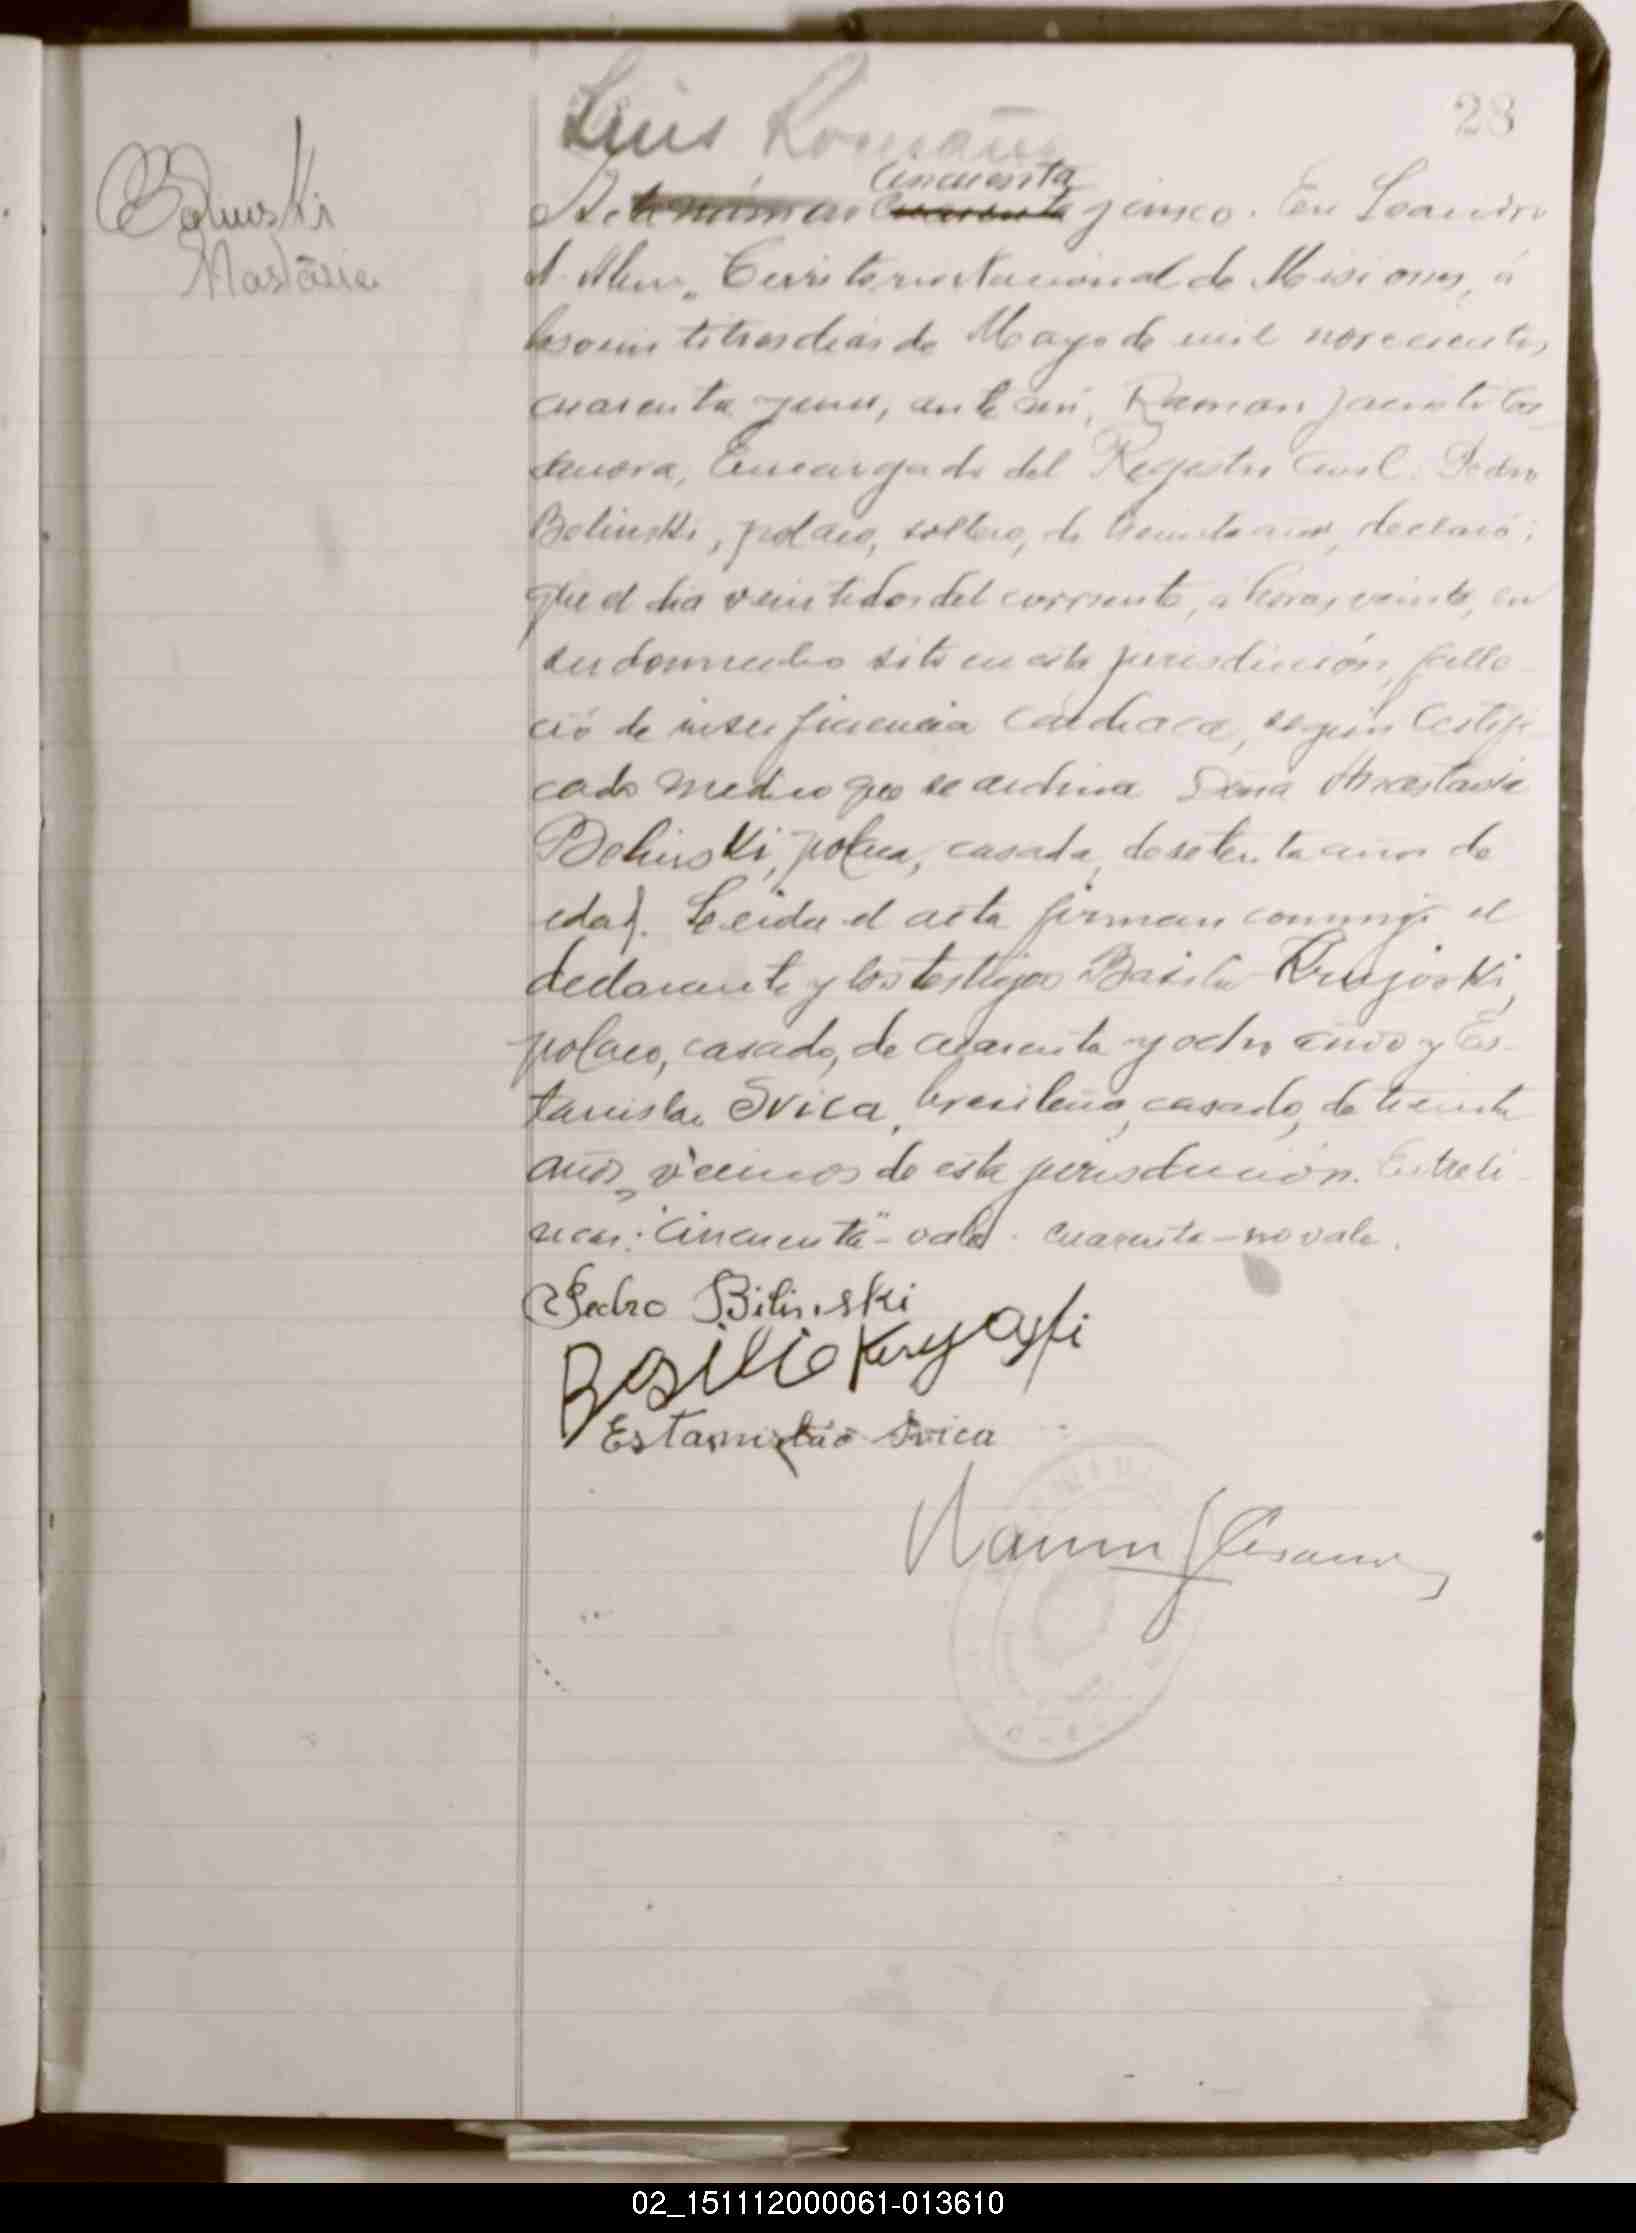 28
Luis Romaña
Bolinski
Nastasia
Acta número cincuenta cuarenta y cinco. En Leandro
N. Alem, Territorio Nacional de Misiones, á
los veintitres dias de Mayo de mil novecientos
cuarenta y uno, ante mí, Ramon Jacinto
Encargado del Registro Civil. Pedro
Bolinski, polaco, soltero, de treinta años, declaró:
que el dia veintidos del corriente, a horas veinte, en
su domicilio sito en esta jurisdicción, falle-
ció de insuficiencia cardiaca, según certifi-
cado medico que se archiva Doña Anastasia
Bolinski, polaca, casada, de setenta años de
edad. Leida el acta firman conmigo el
declarante y los testigos Basilio Krujoski,
polaco, casado, de cuarenta y ocho años y Es-
tanislao Svica, brasileño, casado, de treinta
años, vecinos de esta jurisdicción. Entreli-
neas: "cincuenta" - vale. cuarenta - no vale.
Pedro Bilinski
Basilio
Estanislao Svica
Ramon J
02_151112000061-013610